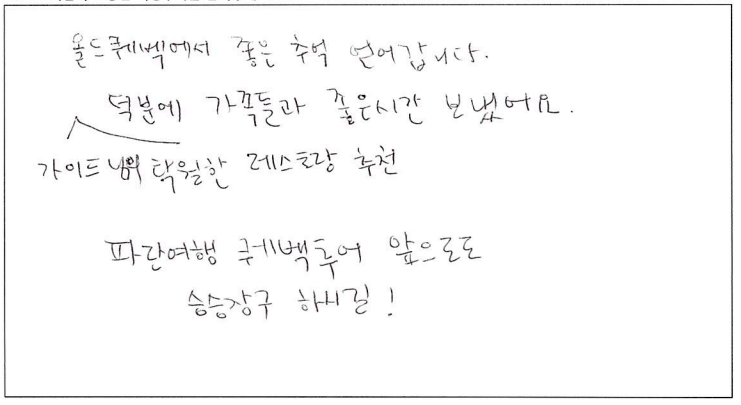 올드퀘벡에서 좋은 추억 얻어갑니다.
덕분에 가족들과 좋은시간 보냈어요.
가이드님의 탁월한 레스토랑 추천
파란여행 퀘벡투어 앞으로도
승승장구 하시길!